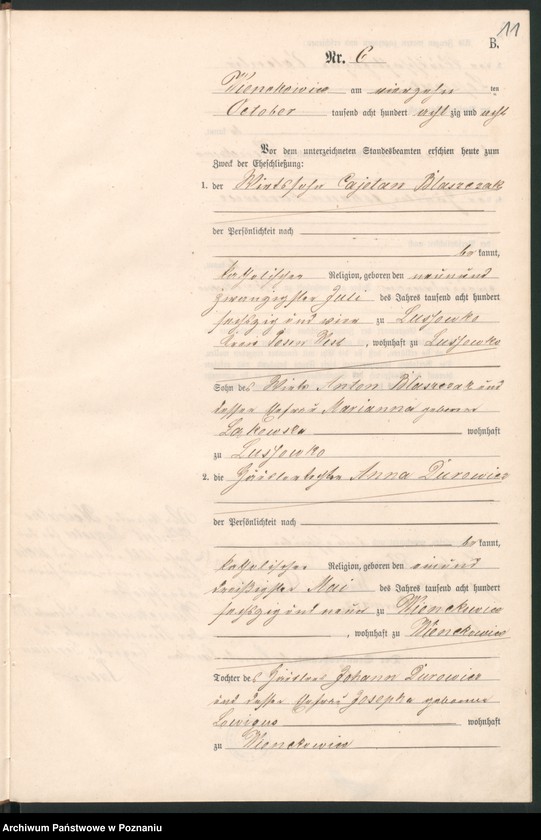 11
B.
Nr. 6
Wienckowice am vierzehn ten
October tausend acht hundert acht zig und acht
Vor dem unterzeichneten Standesbeamten erschien heute zum
Zweck der Eheschließung:
1. der Wirthssohn Cajetan Blaszczak
der Persönlichkeit nach
be kannt,
katholischer Religion, geboren den neunund
zwanzigsten Juli des Jahres tausend acht hundert
sechszig und vier zu Lussowko
Kreis Posen West, wohnhaft zu Lussowko
Sohn des Wirths Anton Blaszczak und
dessen Ehefrau Marianna geborene
wohnhaft
zu Lussowko
2. die Häuslertochter Anna Durowicz
der Persönlichkeit nach
be kannt,
katholischer Religion, geboren den einund
dreißigsten Mai des Jahres tausend acht hundert
sechszig und neun zu Wienckowice
, wohnhaft zu Wienckowice
Tochter des Häuslers Johann Durowicz
und dessen Ehefrau Josepha geborene
wohnhaft
zu Wienckowice
Archiwum Państwowe w Poznaniu